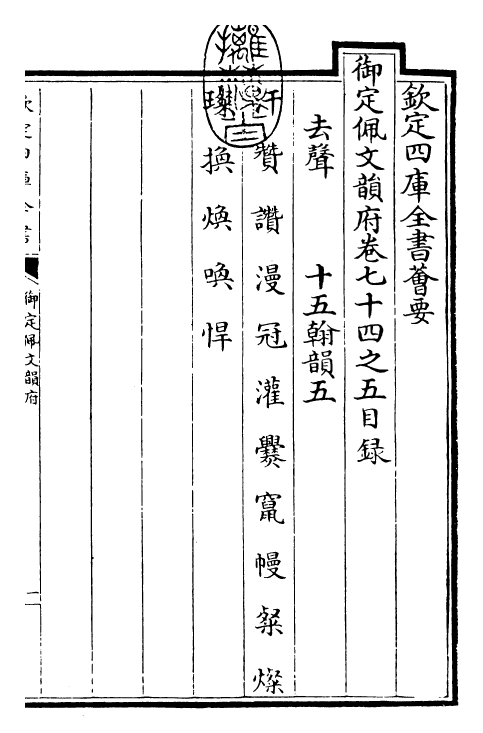 欽定四庫全書薈要
御定佩文韻府卷七十四之五目錄
去聲 十五翰韻五
汗贊讚漫冠灌爨竄幔粲燦
璨換煥喚悍
御定佩文韻府
一